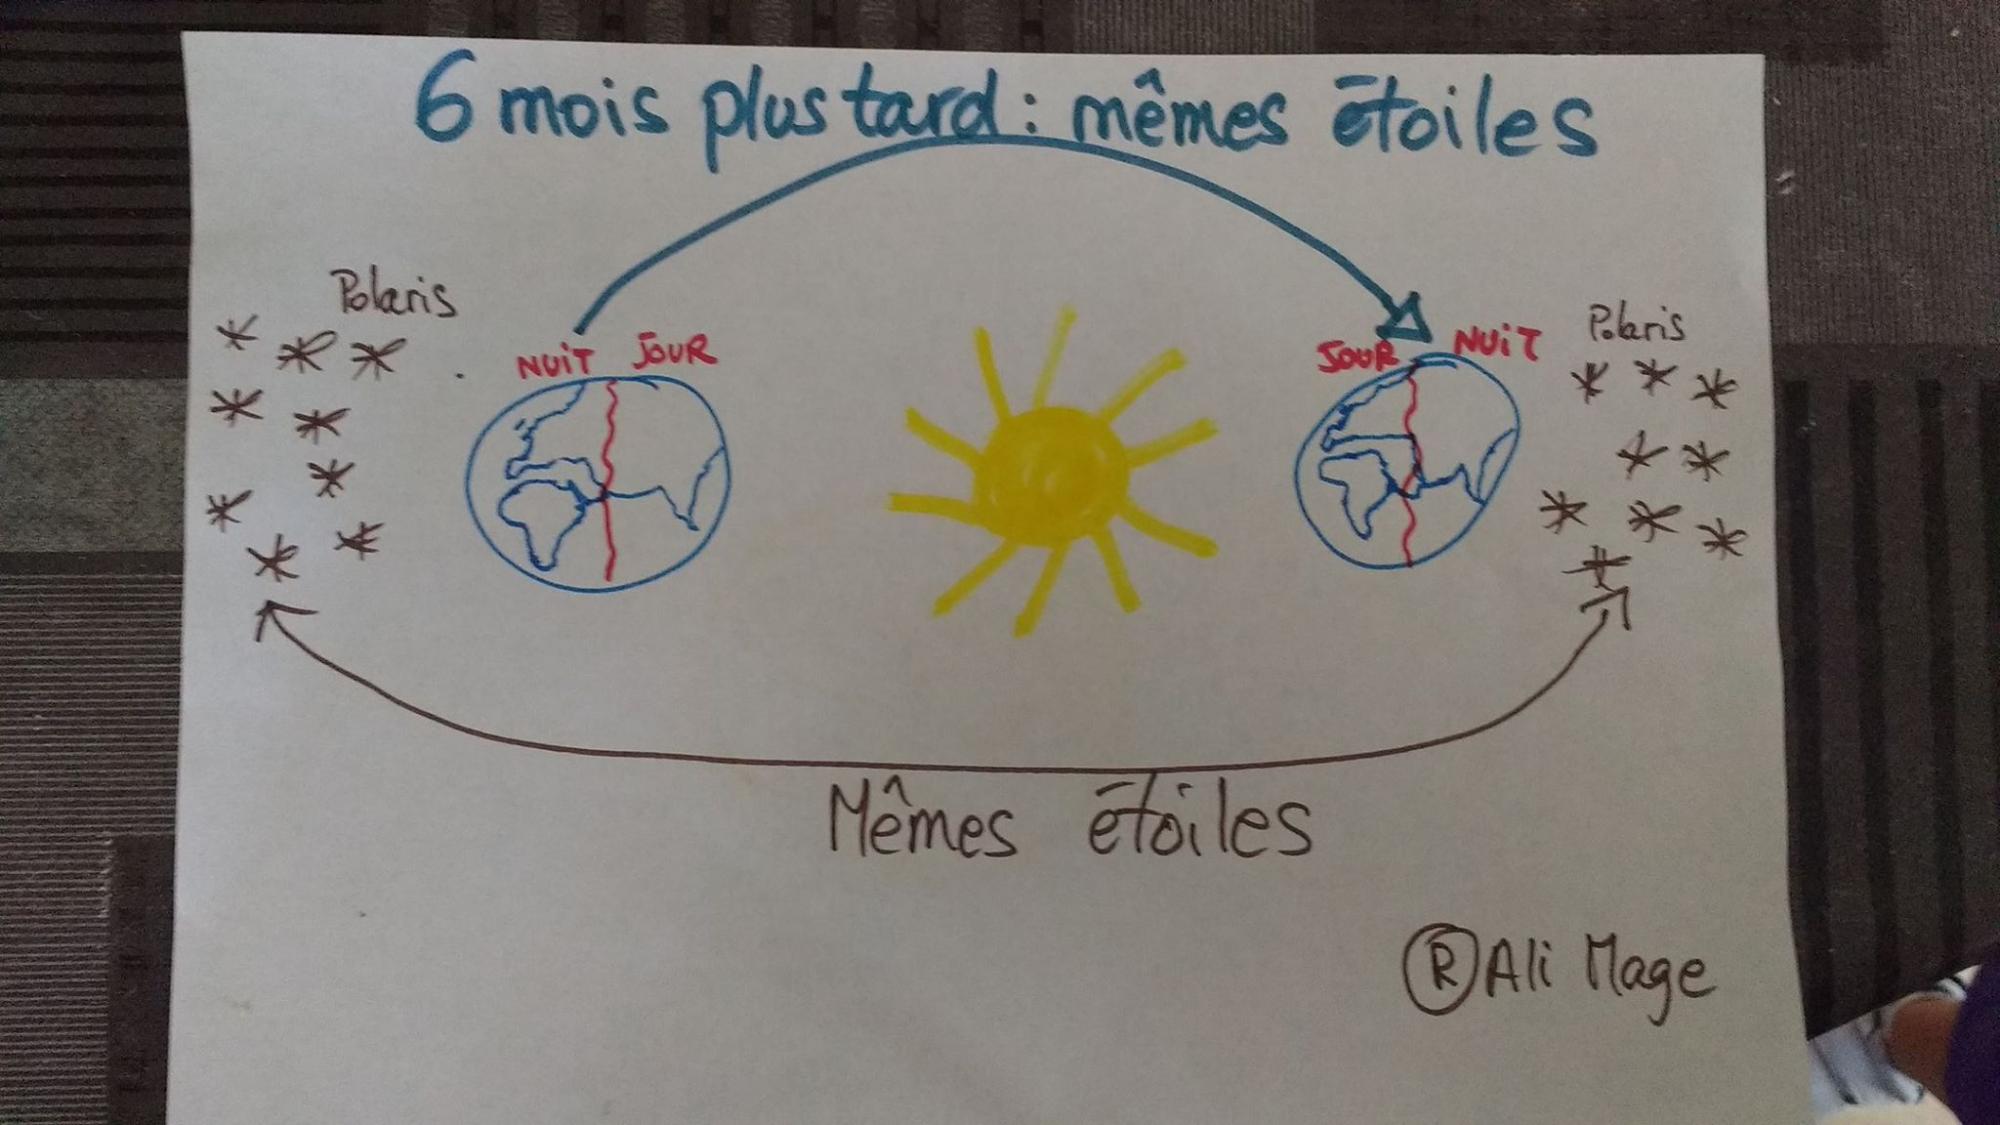 6 mois plus tard : mêmes étoiles
Polaris
NUIT JOUR
JOUR NUIT
Polaris
Mêmes étoiles
® Ali Mage